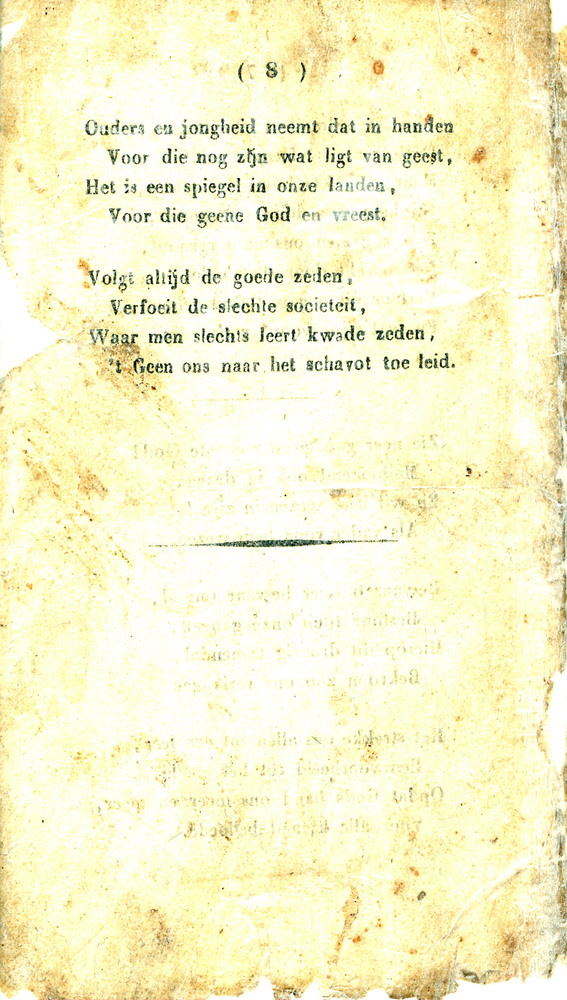 ( 8 )
Ouders en jongheid neemt dat in handen
Voor die nog zijn wat ligt van geest,
Het is een spiegel in onze landen,
Voor die geene God en vreest.
Volgt altijd de goede zeden,
Verfoeit de slechte societeit,
Waar men slechts leert kwade zeden,
't Geen ons naar het schavot toe leid.